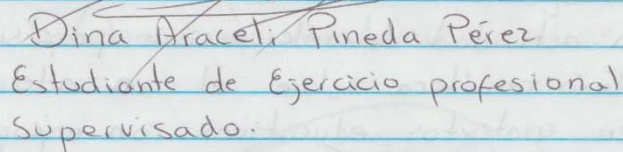 Dina Araceli Pineda Pérez
Estudiante de Ejercicio profesional
supervisado.